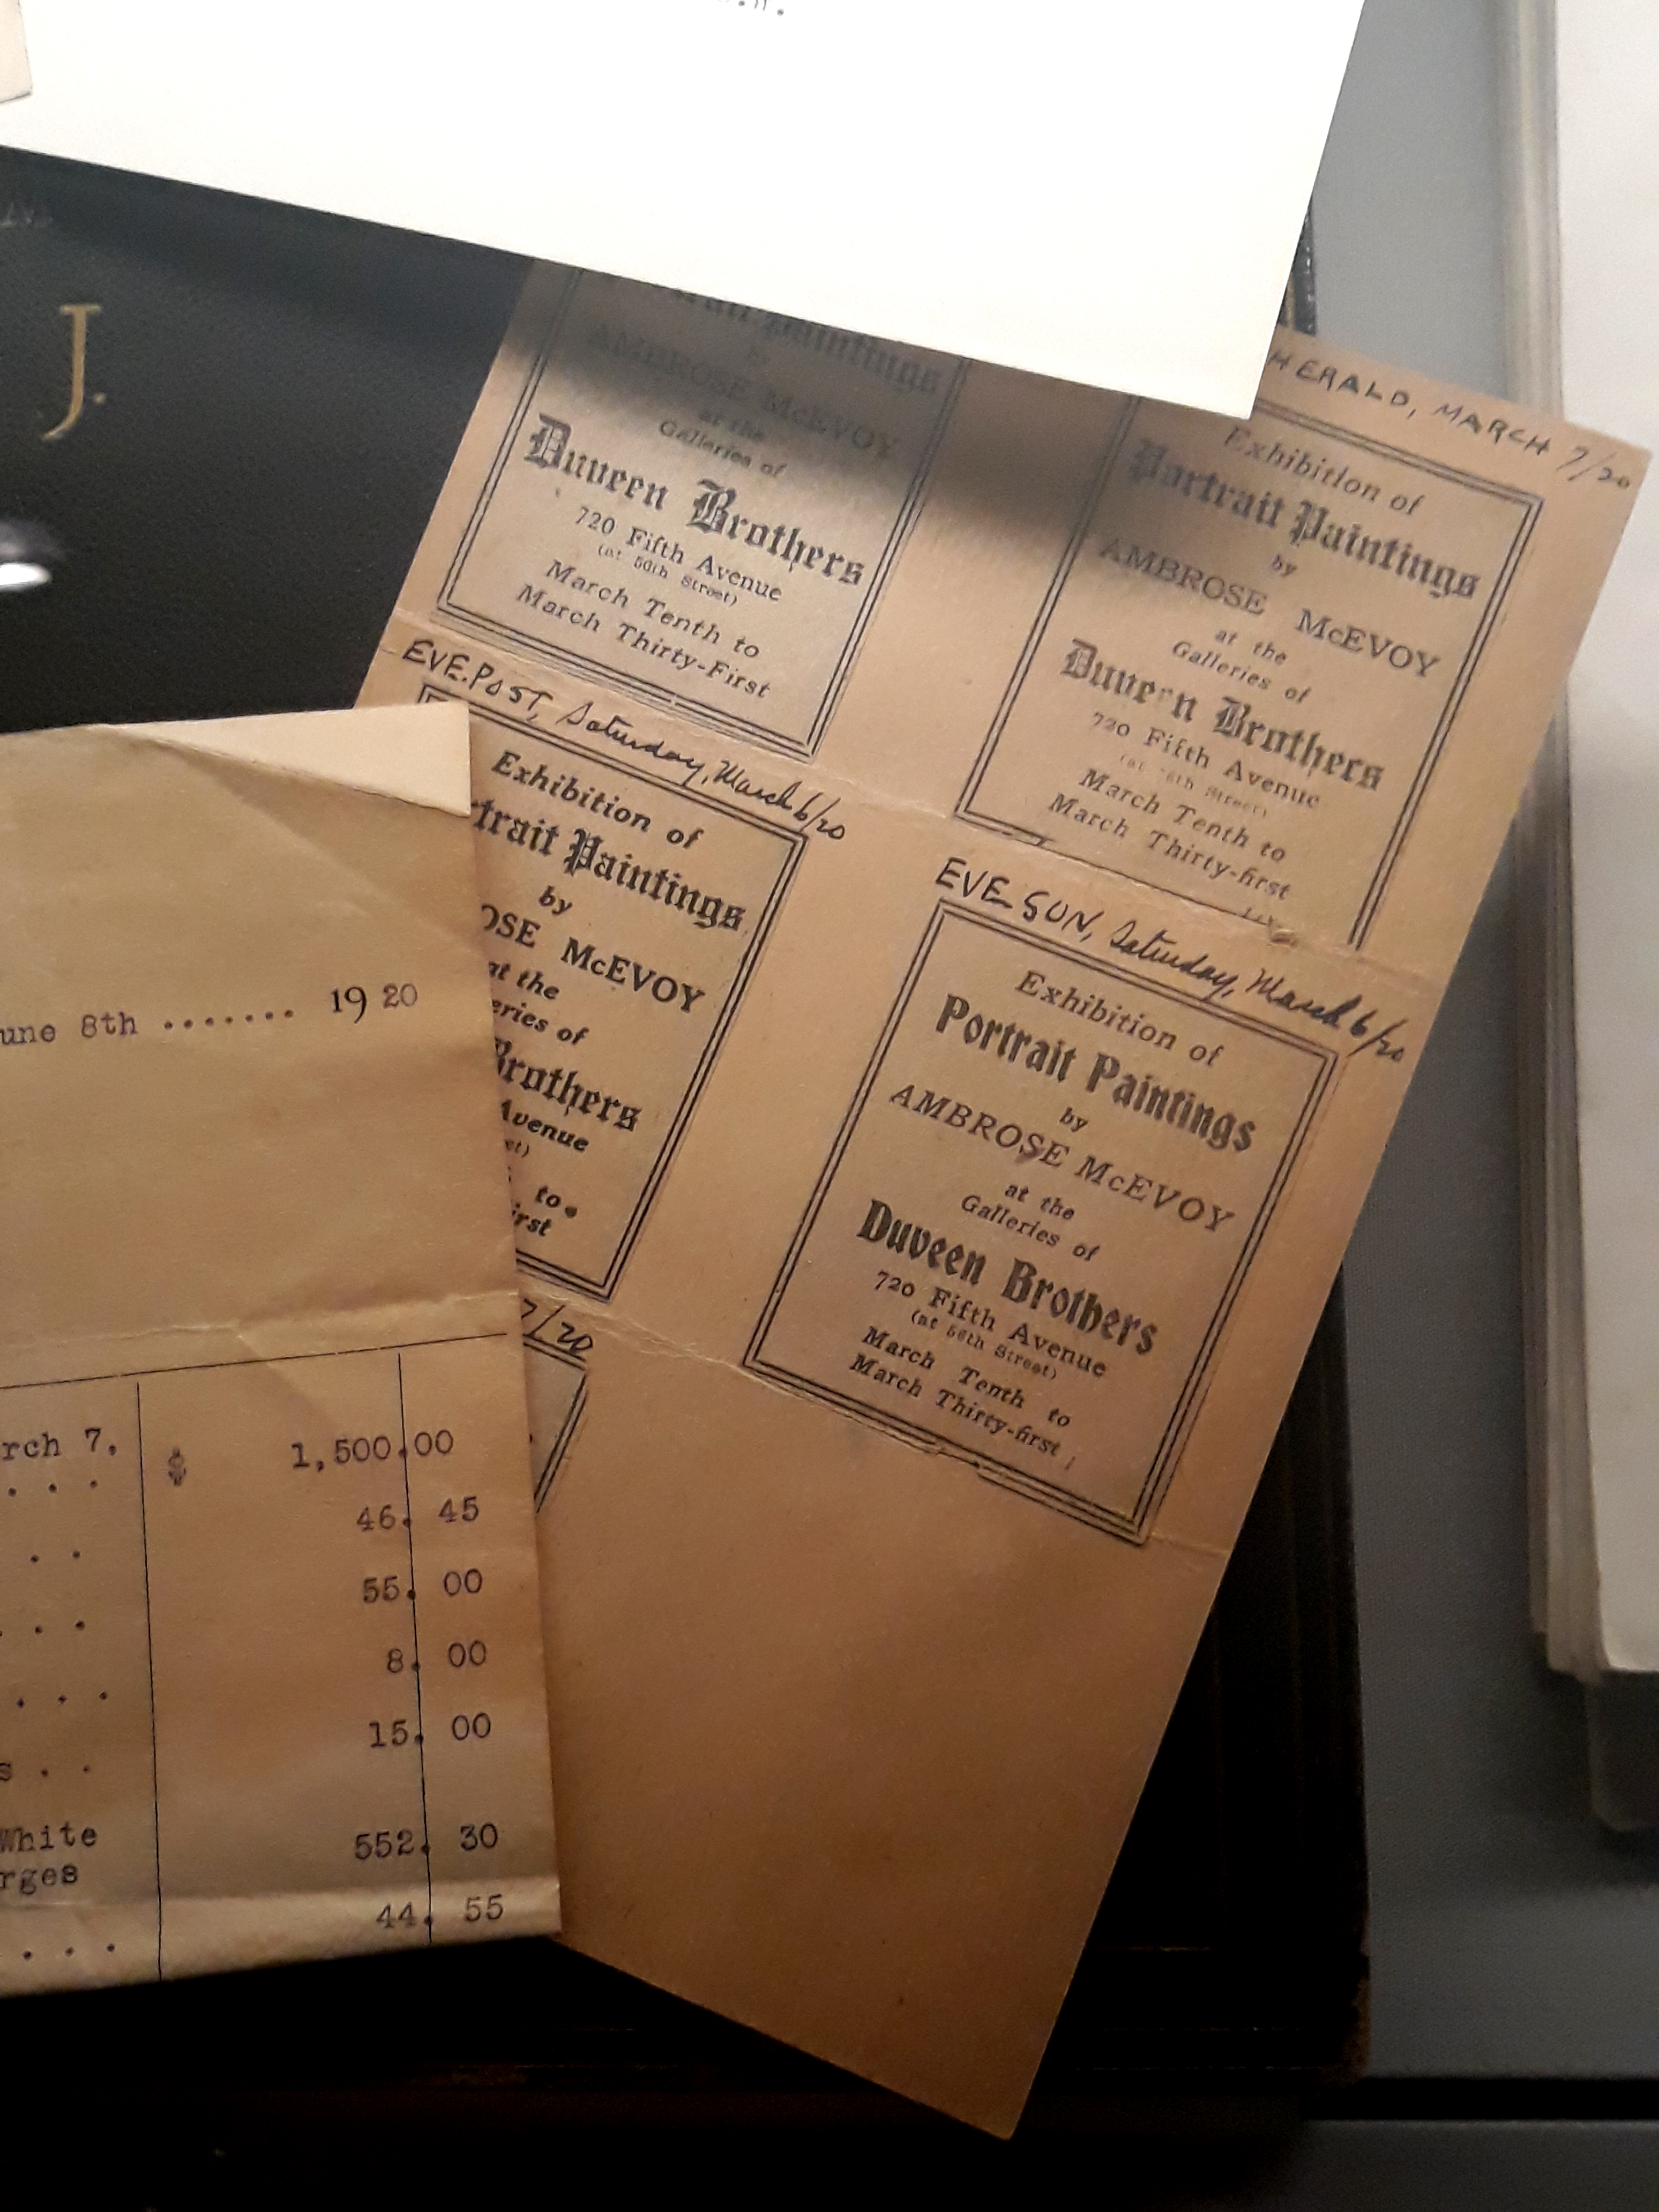 J.
Paintings
by
AMBROSE McEVOY
at the
Galleries of
Duveen Brothers
720 Fifth Avenue
(at 56th Street)
March Tenth to
March Thirty-First
HERALD, MARCH 7/20
Exhibition of
Portrait Paintings
by
AMBROSE McEVOY
at the
Galleries of
Duveen Brothers
720 Fifth Avenue
(at 56th Street)
March Tenth to
March Thirty-first
EVE. POST, Saturday, March 6/20
Exhibition of
trait Paintings
by
OSE McEVOY
at the
eries of
Brothers
Avenue
et)
to
irst
7/20
EVE SUN, Saturday, March 6/20
Exhibition of
Portrait Paintings
by
AMBROSE McEVOY
at the
Galleries of
Duveen Brothers
720 Fifth Avenue
(at 56th Street)
March Tenth to
March Thirty-first
une 8th ....... 1920
rch 7. $ 1,500.00
. . .
46. 45
. .
55. 00
. . .
8. 00
. . . .
15. 00
s . .
White 552. 30
rges
44. 55
. . . .